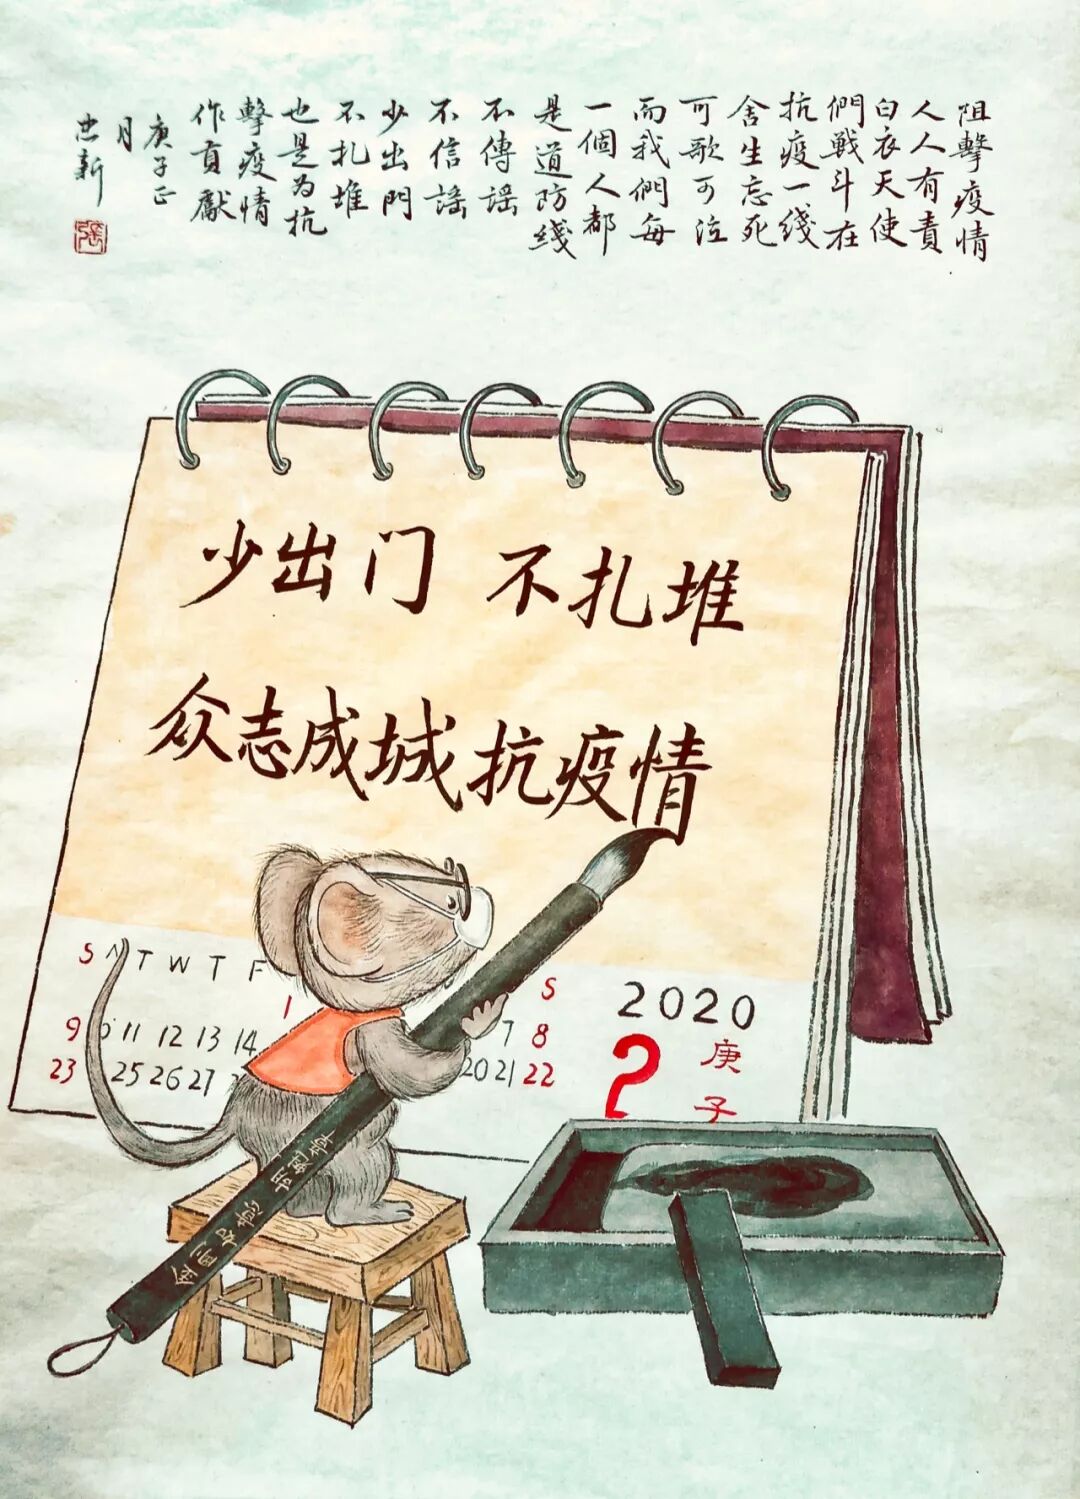 阻擊疫情
人人有責
白衣天使
們戰斗在
抗疫一线
舍生忘死
可歌可泣
而我們每
一個人都
是道防綫
不傳謡
不信謡
少出門
不扎堆
也是为抗
擊疫情
作貢獻
庚子正
月
忠新
張
少出门 不扎堆
众志成城抗疫情
S M T W T F S
1
9 11 12 13 14 7 8
23 25 26 27 20 21 22
2020
2
庚子
金剛如意 胡魁章